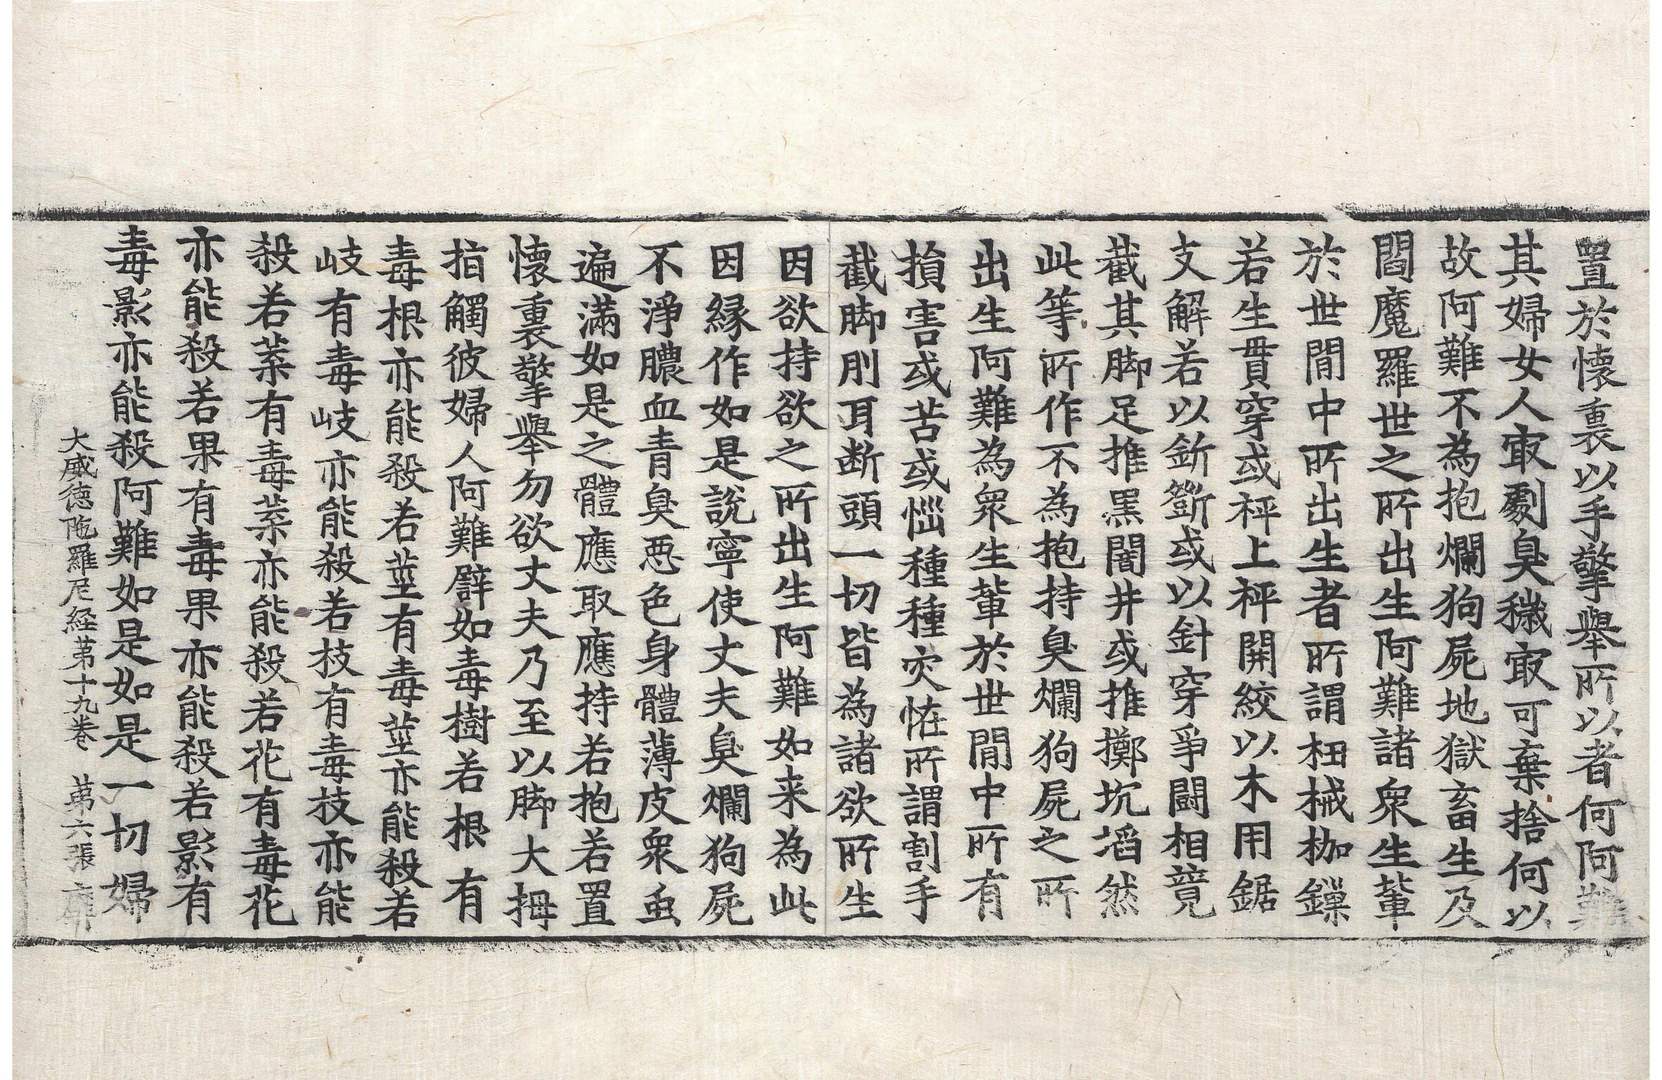 置於懷裏以手擎舉所以者何阿難
其婦女人㝡劇臭穢㝡可棄捨何以
故阿難不為抱爛狗屍地獄畜生及
閻魔羅世之所出生阿難諸衆生軰
於世間中所出生者所謂杻械枷鏁
若生貫穿或秤上秤開絞以木用鋸
支解若以釿斵或以針穿爭闘相竟
截其脚足推黒闇井或推擲坑滔然
此等所作不為抱持臭爛狗屍之所
出生阿難為衆生軰於世間中所有
損害或苦或惱種種灾恠所謂割手
截脚刖耳断頭一切皆為諸欲所生
因欲持欲之所出生阿難如来為此
因縁作如是說寧使丈夫臭爛狗屍
不淨膿血青臭惡色身體薄皮衆虫
遍滿如是之體應取應持若抱若置
懷裏擎舉勿欲丈夫乃至以脚大拇
指觸彼婦人阿難譬如毒樹若根有
毒根亦能殺若莖有毒莖亦能殺若
岐有毒岐亦能殺若枝有毒枝亦能
殺若葉有毒葉亦能殺若花有毒花
亦能殺若果有毒果亦能殺若影有
毒影亦能殺阿難如是如是一切婦
大威徳陁羅尼経苐十九巻 苐六張